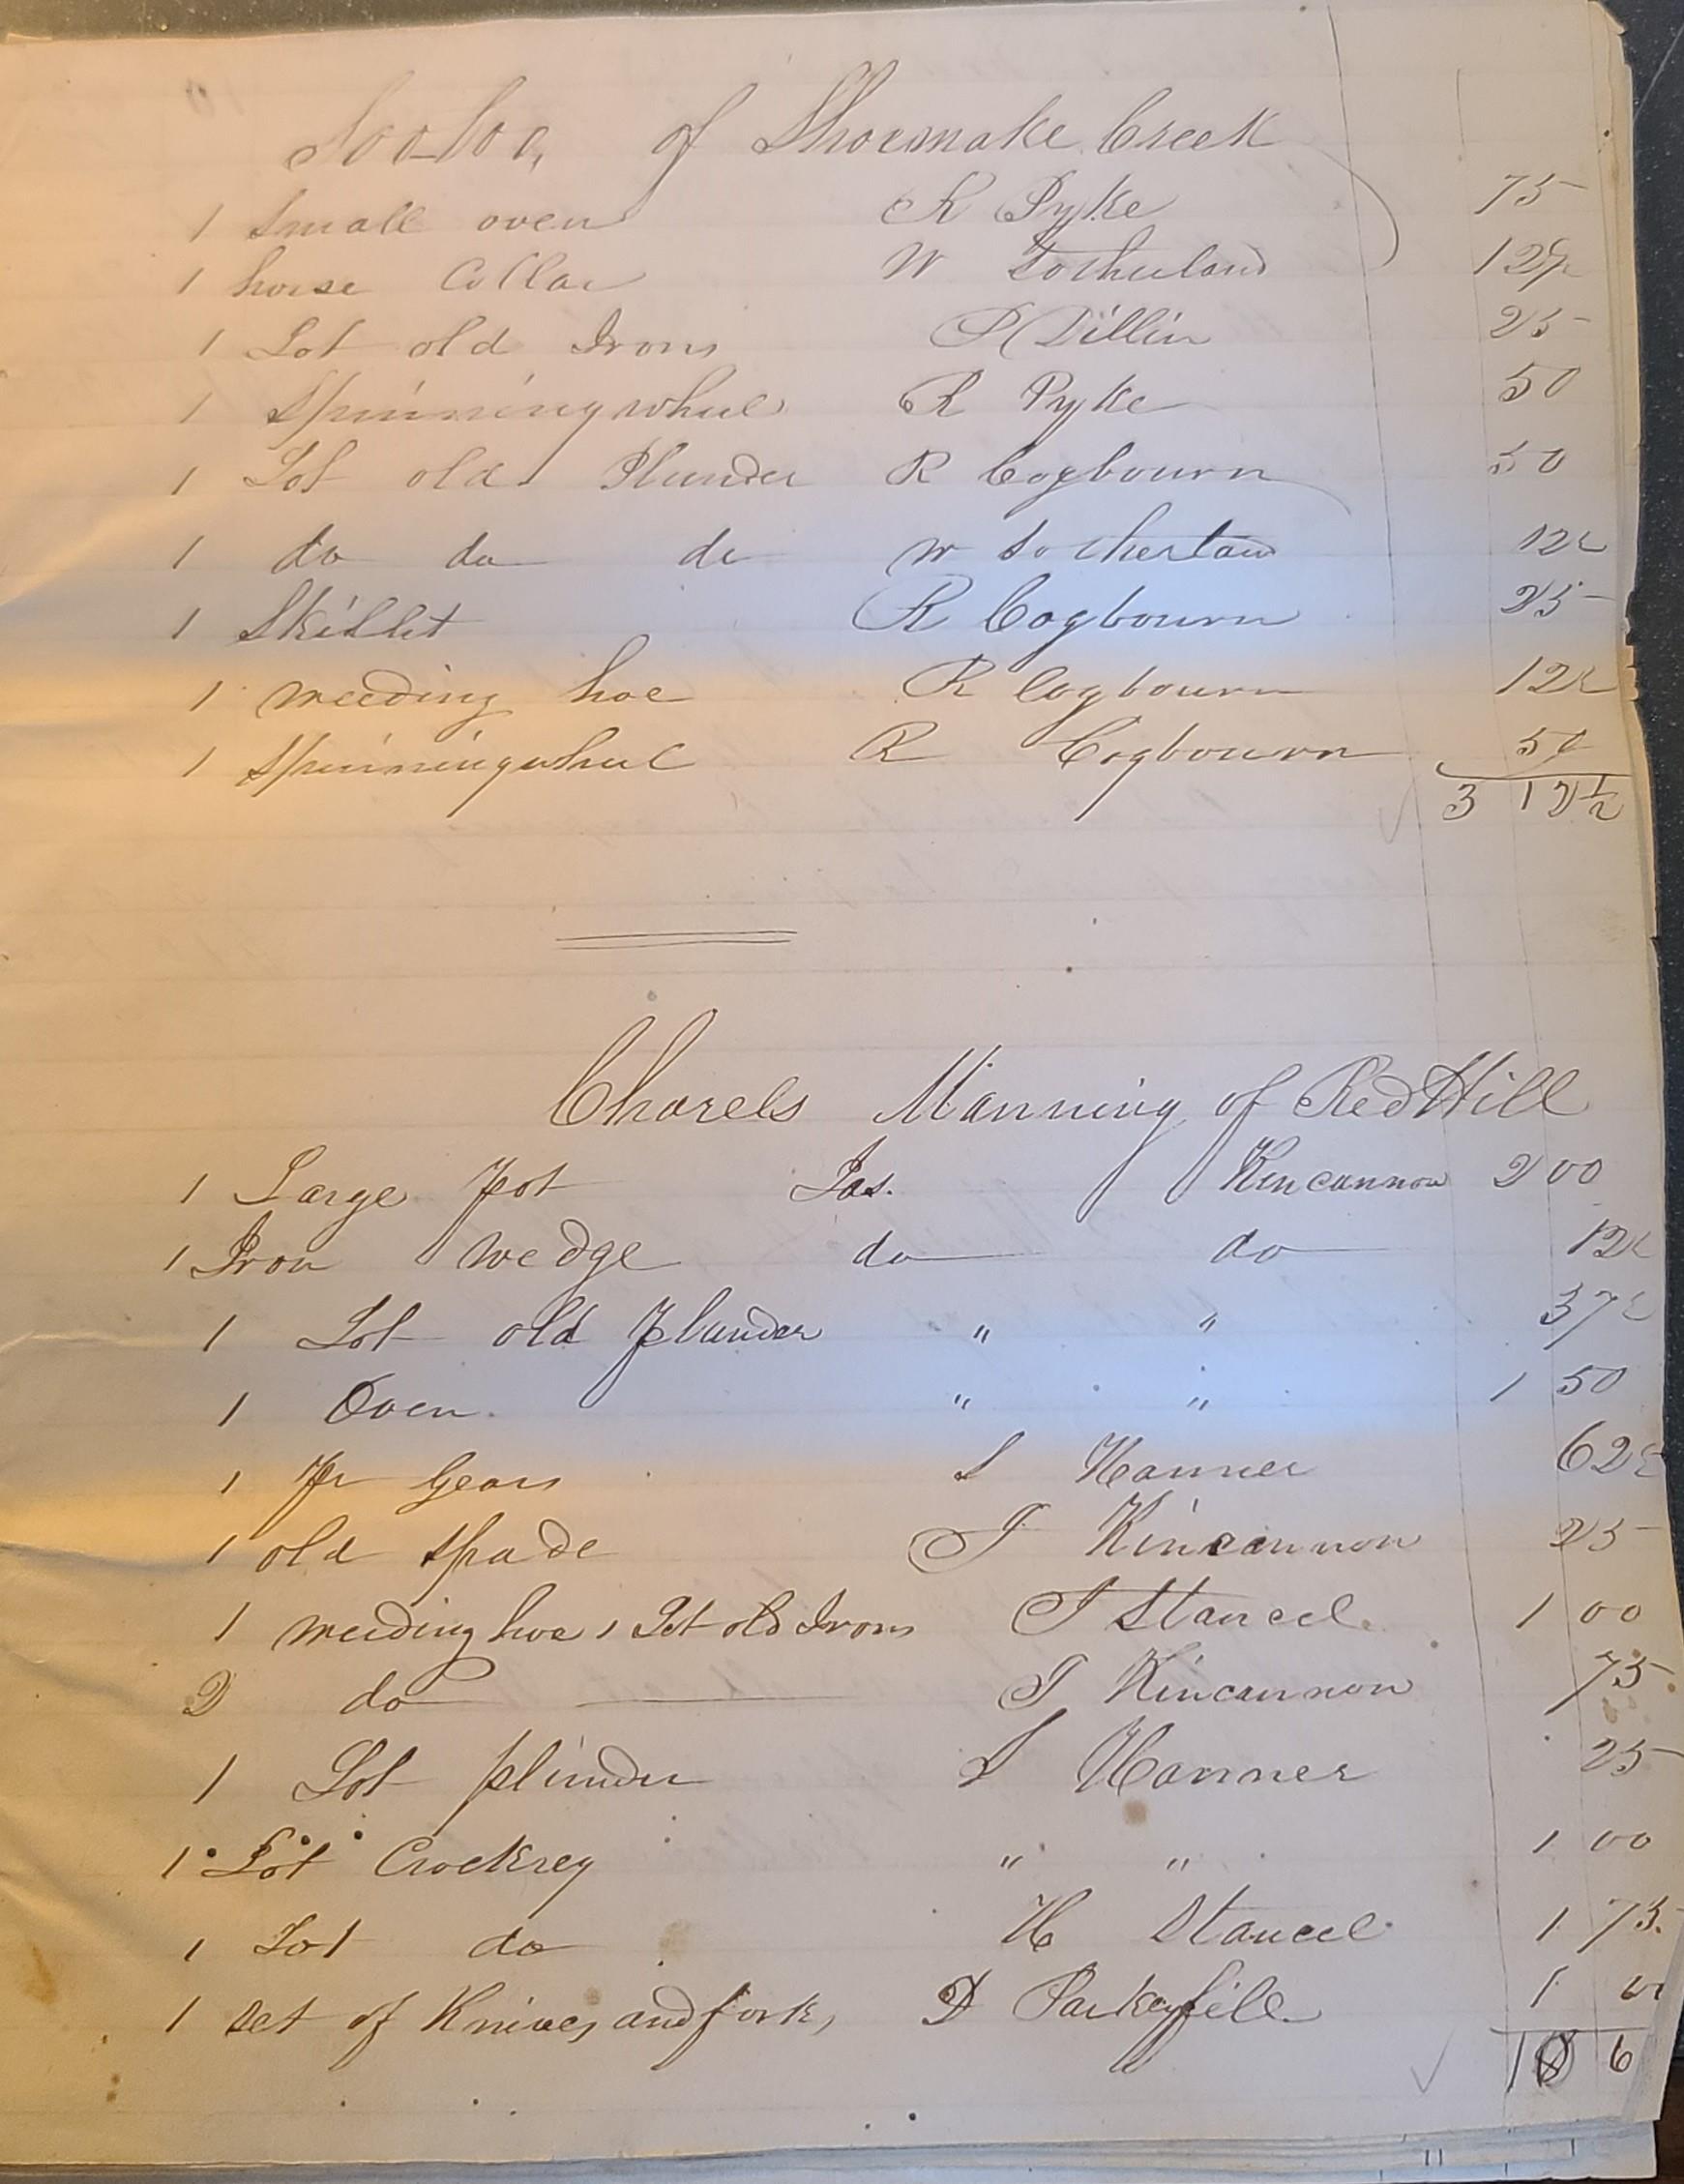 Soo-loo, of Shoemake Creek
1 Small oven R Pyke 75
1 horse Collar W Sotherland 12½
1 Lot old Irons P Dillin 25
1 Spinningwheel R Pyke 50
1 Lot old Plunder R Cogbourn 50
1 do do do W Sotherland 12½
1 Skillet R Cogbourn 25
1 weeding hoe R Cogbourn 12½
1 Spinningwheel R Cogbourn 50
3 12½
Charels Manning of Red Hill
1 Large pot Jas. Kincannon 2 00
1 Iron wedge do do 12½
1 Lot old plunder " " 37½
1 Oven " " 1 50
1 pr Gears S Hanner 62½
1 old Spade T Kincannon 25
1 weeding hoe 1 Lot old Irons T Stancel 1 00
2 do T Kincannon 75
1 Lot plunder S Hanner 25
1 Lot Crockrey " " 1 00
1 Lot do H Stancel 1 75
1 set of Knives and forks D 1
6